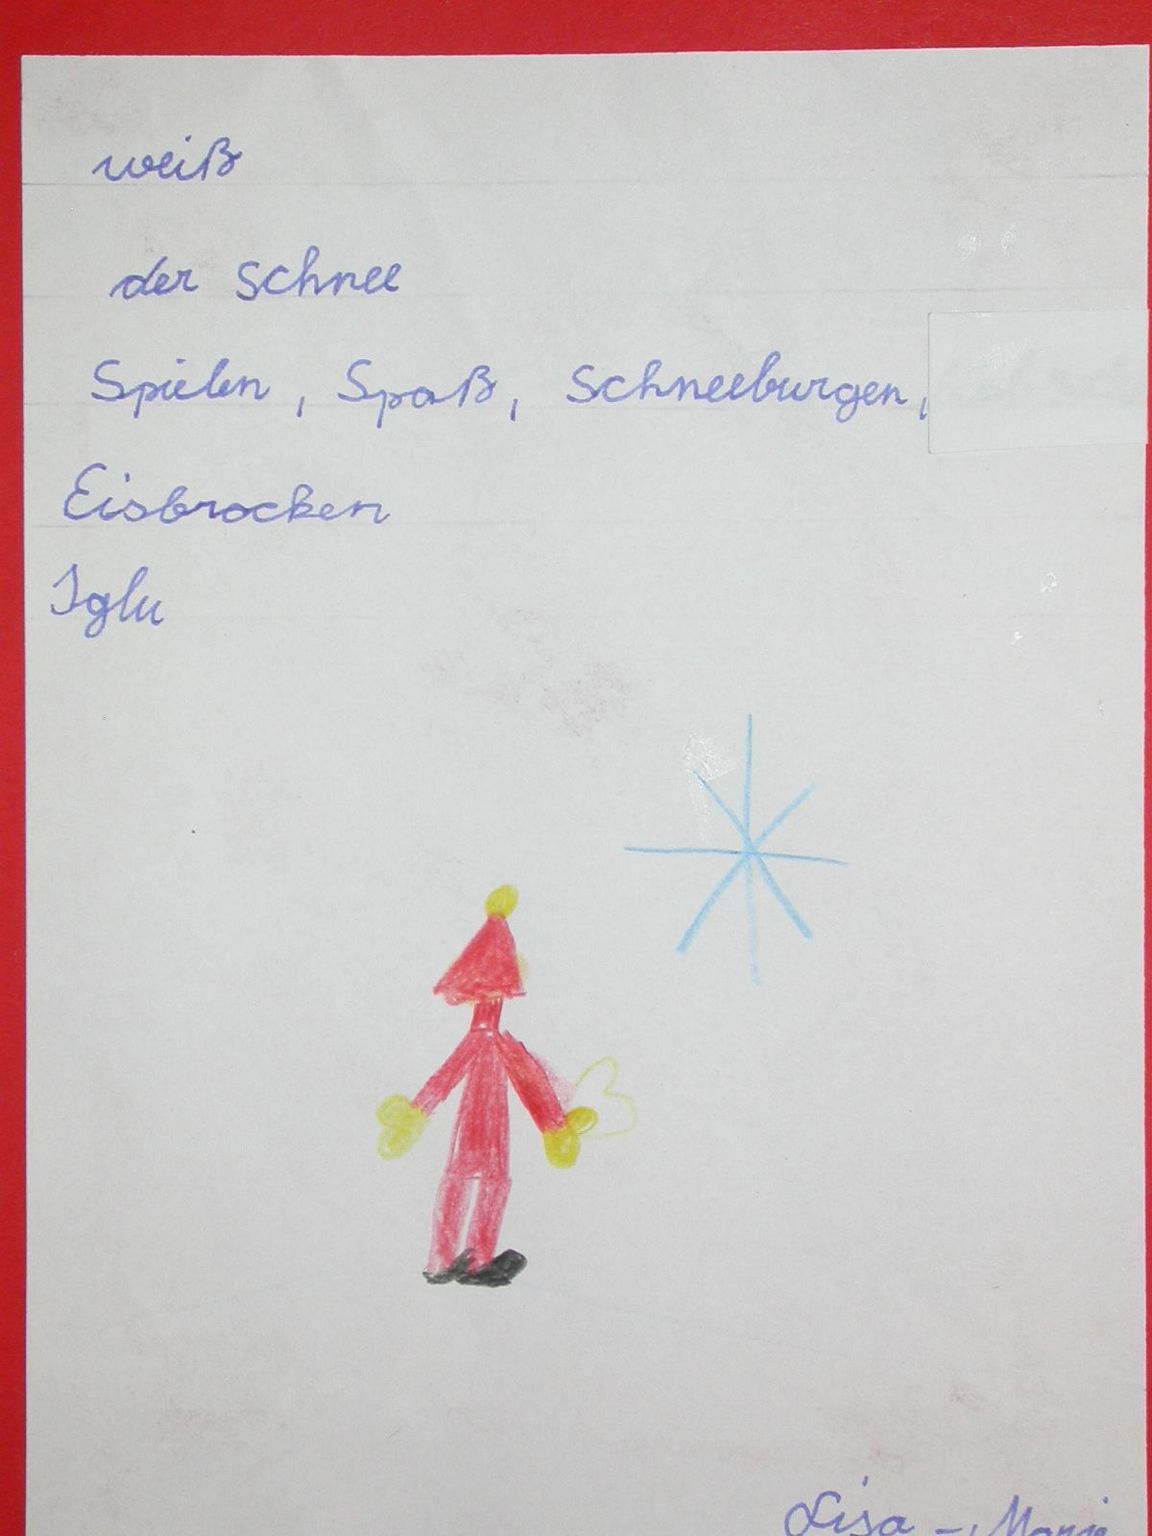 weiß
der Schnee
Spielen, Spaß, Schneeburgen,
Eisbrocken
Iglu
Lisa - Marie